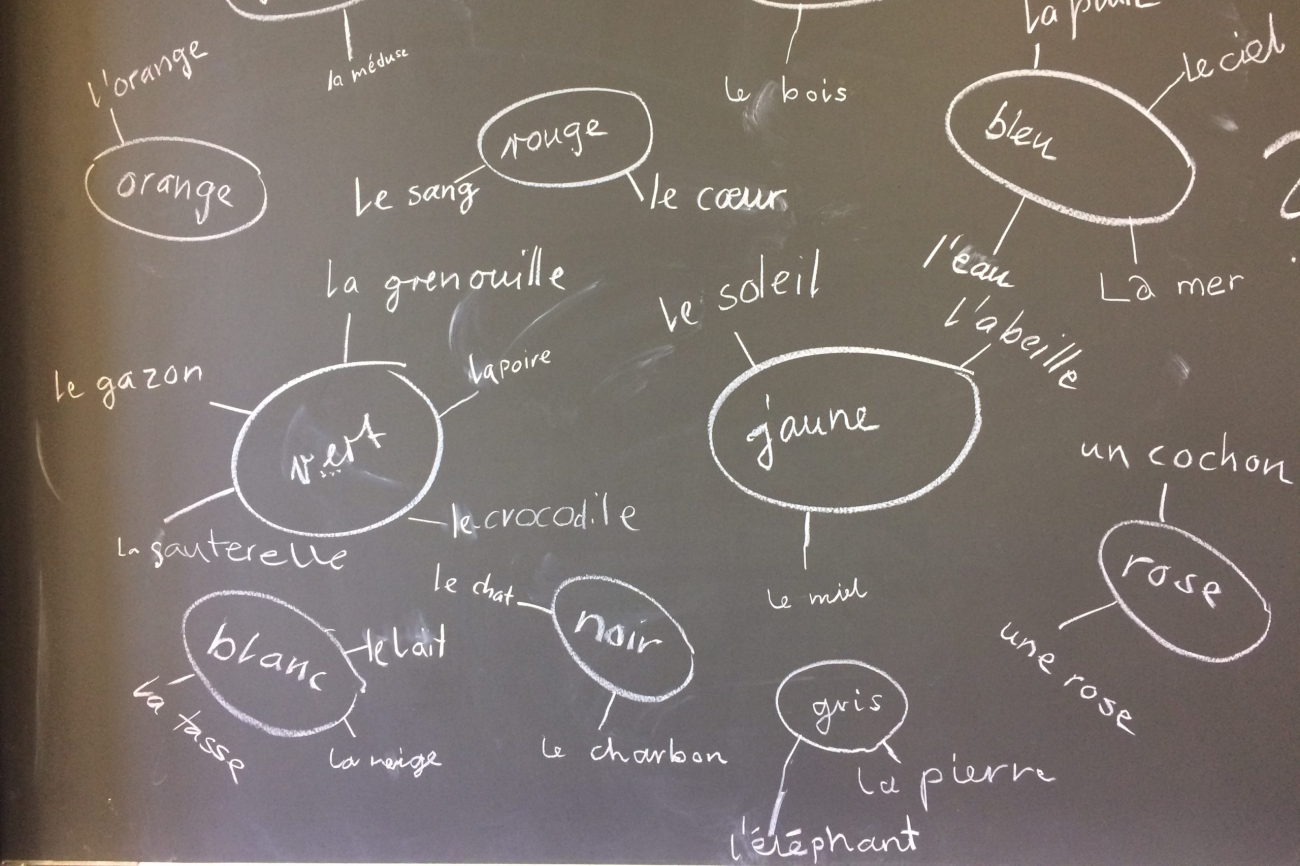 la méduse
le bois
le ciel
l'orange
orange
rouge
le sang
le cœur
bleu
l'eau
La mer
la grenouille
le gazon
la poire
vert
le crocodile
la sauterelle
le soleil
l'abeille
jaune
le miel
un cochon
rose
une rose
blanc
le lait
la tasse
la neige
le chat
noir
le charbon
gris
la pierre
l'éléphant